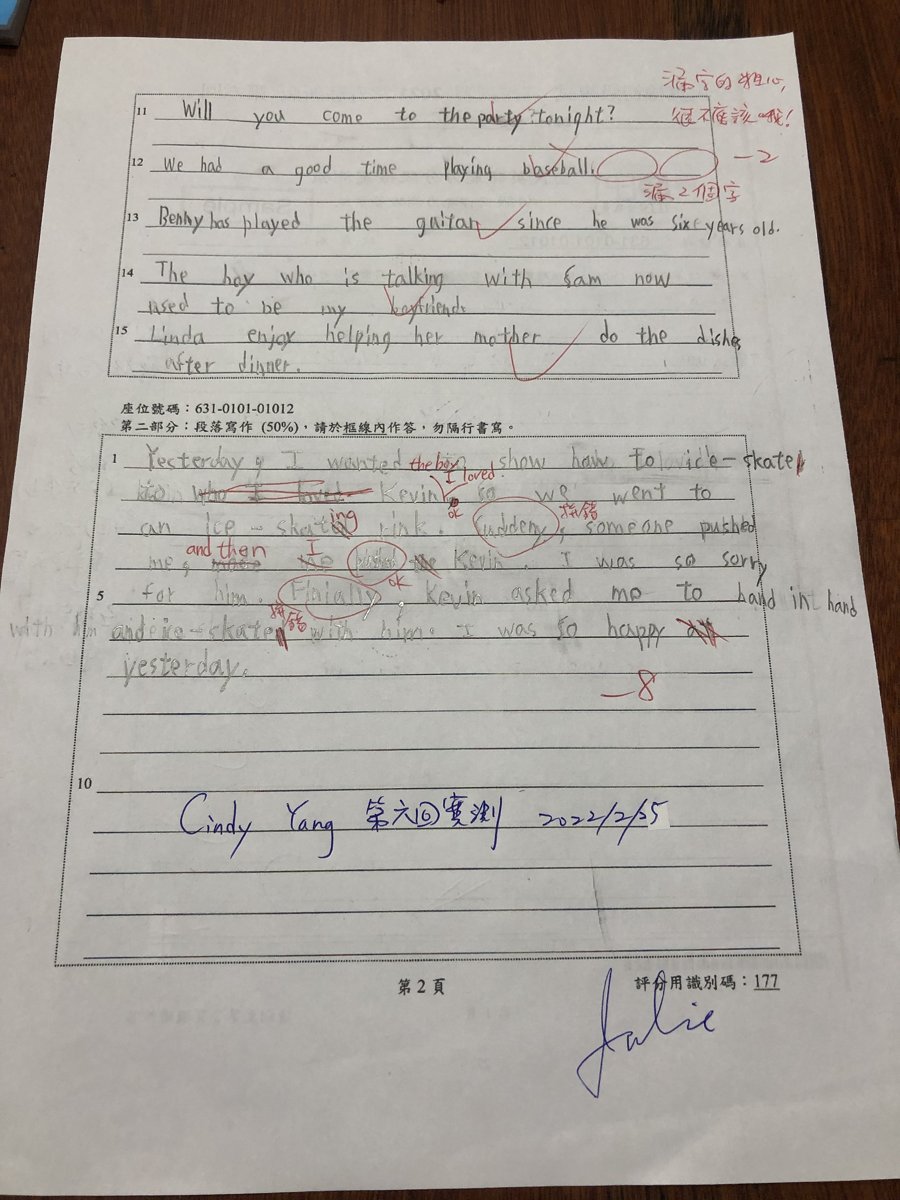 漏字的粗心,
很不應該哦!
11 Will you come to the party tonight?
12 We had a good time playing baseball. -2
漏2個字
13 Benny has played the guitar since he was six years old.
14 The boy who is talking with Sam now
used to be my boyfriend.
15 Linda enjoy helping her mother do the dishes
after dinner.
座位號碼：631-0101-01012
第二部分：段落寫作 (50%)，請於框線內作答，勿隔行書寫。
the boy
I loved
1 Yesterday, I wanted show how to ice-skate
who I loved Kevin, so we went to
ok
an ice-skating rink. Suddenly, someone pushed
拼錯
and then I
me, Kevin. I was so sorry
ok
5 for him. Finially, Kevin asked me to hand in hand
拼錯
with him and ice-skate with him. I was so happy
yesterday.
-8
10
Cindy Yang 第六回實測 2022/2/25
第 2 頁
評分用識別碼：177
Julie